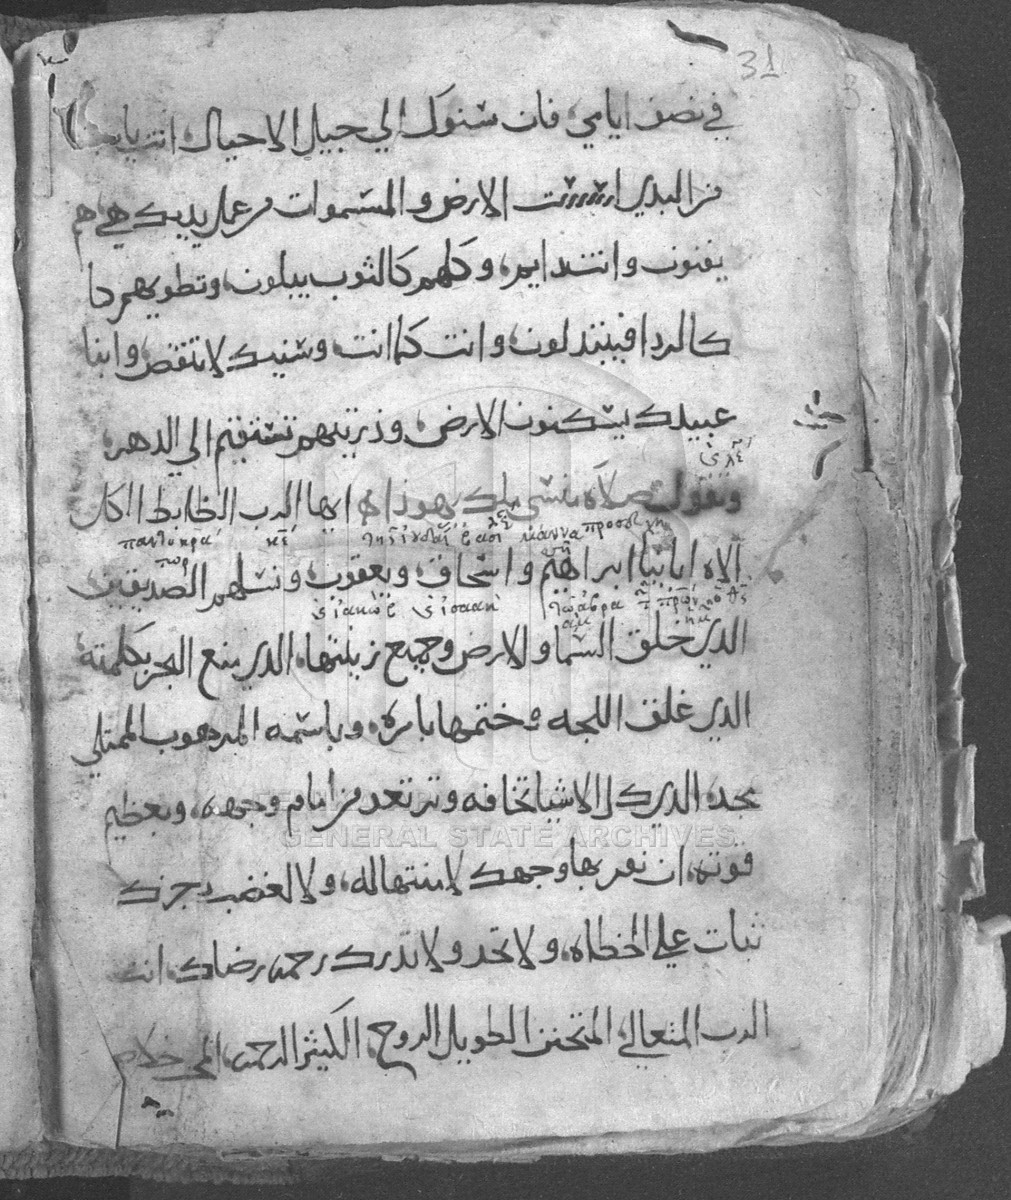 31
في نصف ايامي، فان سنوك الي جيل الاحيال، انت يا
مز البدي اسست الارض والسموات من عمل يديك هي، هم
يفنون وانت دايم، وكلهم كالثوب يبلون، وتطويهم
كالردا فيتبدلون، وانت كما انت وسنيك لا تنقص، وابنا
عبيدك يسكنون الارض، وذريتهم تستقيم الي الدهر،
وتقول صلاة منسي ملك يهوذا ايها الرب الظابط الكل
παντοκρα κε προσευχη
τωρ
الاه ابايبا ابراهيم واسحاف ويعقوب ونسلهم الصديقين
ς ιακωβ ς ισαακ αβρα
الدي خلق السما والارض وجميع زينتها، الدي منع البحر بكلمته
الدي غلق اللجه وختمها بامره، وباسمه المرهوب الممتلي
مجد، الدي كل الاشيا تخافه وترتعد من امام وجهه، وبعظيم
قوته، ان نور بها وجهك لا منتها له، ولا لغضب رجزك
ثبات علي الخطاه، ولا تحد ولا تدرك رحمه رضاك، انت
الرب المتعالي، المتحنن الطويل الروح، الكثير الرحمه،
GENERAL STATE ARCHIVES